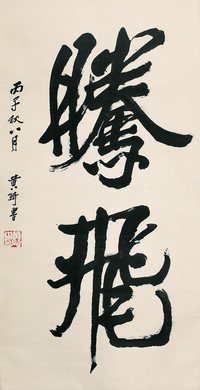 騰飛
丙子秋八月
黄绮書